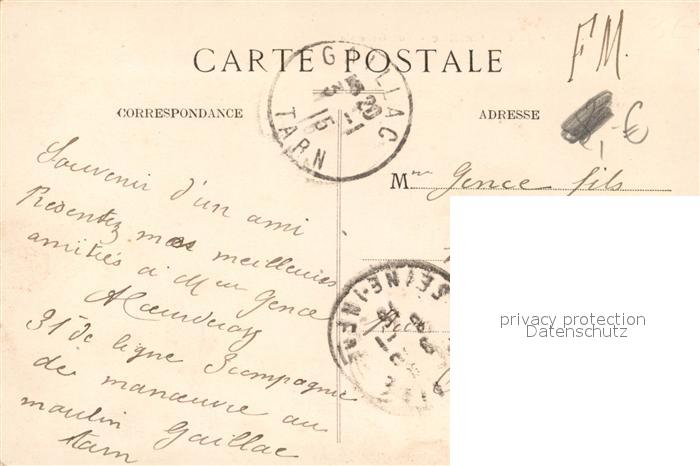 FM.
CARTE POSTALE
GAILLAC
TARN
CORRESPONDANCE
ADRESSE
€
Mme Gence fils
Souvenir d'un ami
Presentez mes meilleures
amitiés à Mme Gence
31e de ligne 3 compagnie
de manœuvre au
moulin Gaillac
tarn
SEINE-INFRE
privacy protection
Datenschutz